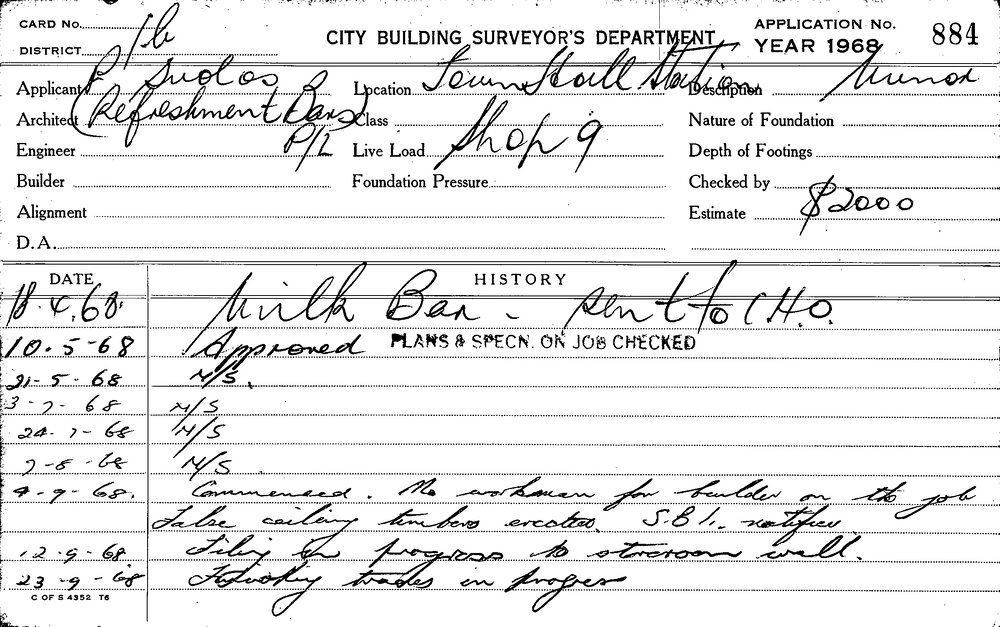 CARD No.
DISTRICT
CITY BUILDING SURVEYOR'S DEPARTMENT
APPLICATION No.
YEAR 1968
884
Applicant
(Refreshment Bars)
P/L
Location Town Hall Station
Shop 9
Description Minor
Architect
Class
Nature of Foundation
Engineer
Live Load
Depth of Footings
Builder
Foundation Pressure
Checked by
Alignment
Estimate $2000
D.A.
DATE
HISTORY
18.4.68. Milk Bar - sent to C.H.O.
10.5-68 Approved PLANS & SPECN. ON JOB CHECKED
21-5-68 N/S.
3-7-68 N/S
24-7-68 N/S
7-8-68 N/S
4-9-68. Commenced. No workman for builder on the job
False ceiling timbers erected. S.B.I. notified
12-9-68 Tiling in progress to storeroom wall.
23-9-68 Finishing trades in progress
C OF S 4352 T6